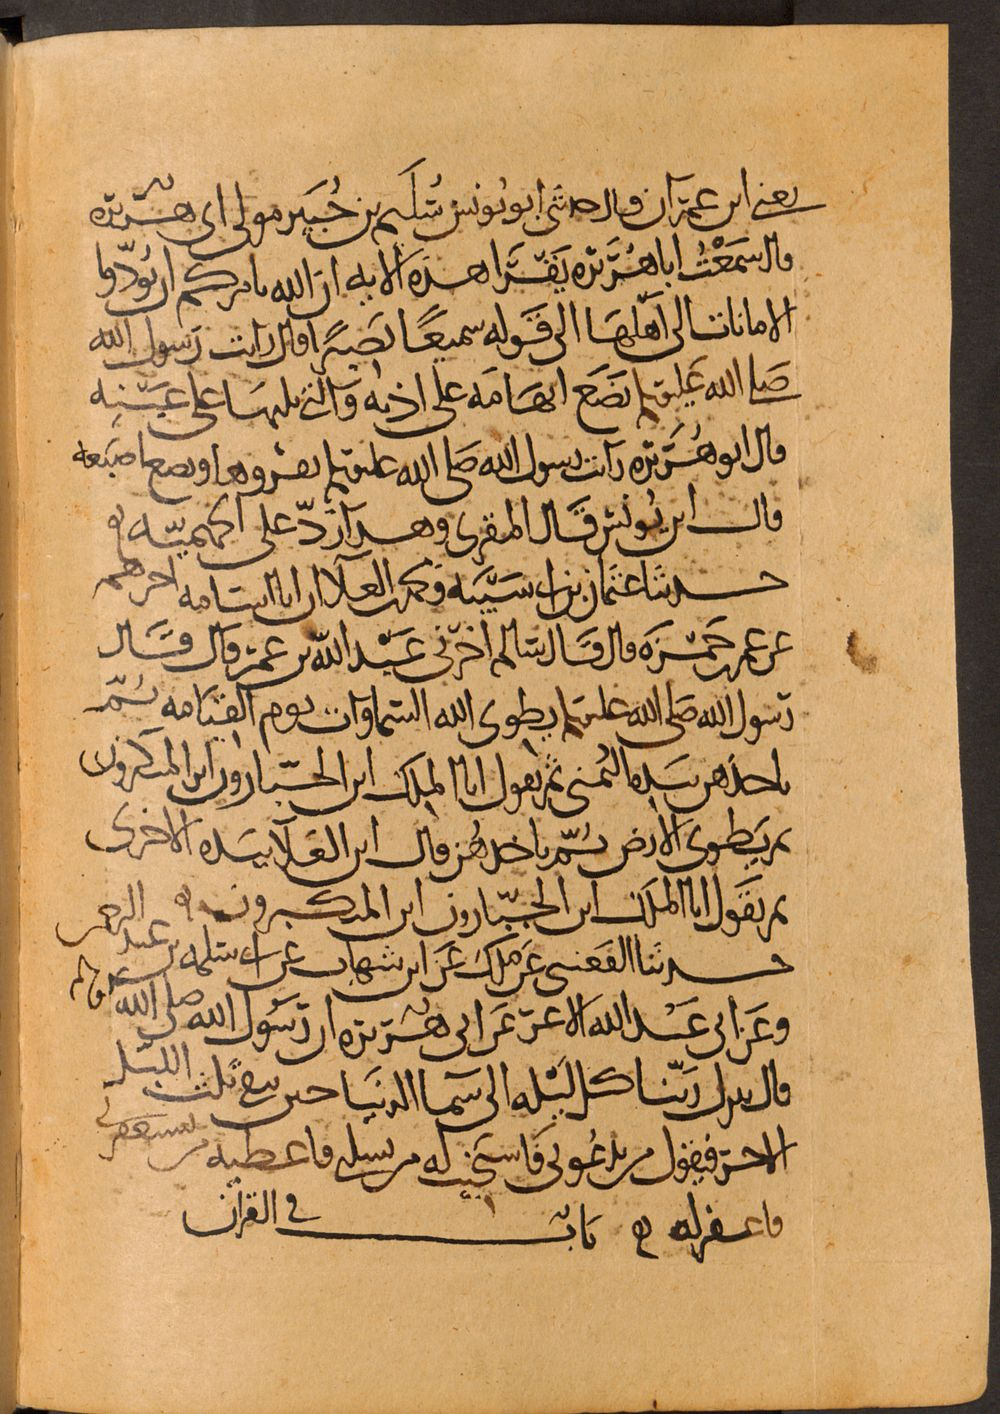 يعني ابن عمران قال حدثني ابو يونس سُليم بن جُبَير مولى ابي هريرة
قال سمعْتُ ابا هُرَيرة يَقرَا هذه الايه ان الله يامركم ان تُؤدّوا
الامانات الى اهْلهَا الى قَوله سميعًا بَصيرًا قال رايت رَسول الله
صلى الله عليه وسلم يَضَع ابهامَه على اذنه والتي تليهَا على عَيْنِه
قال ابو هُرَيرة رايت رسول الله صَلى الله عليه وسلم يقروها ويضع اصبعيه
قال ابن يُونسَ قَال المقري وهذا رَدّ على الجهميّه
حدثنا عثمان بن ابي شَيْبَه ومحمد بن العلا ان ابا اسامه اخبرهم
عن عمر بن حَمْزَه قال قَال سَالم اخبرني عَبْد الله بن عمر قال قَال
رَسول الله صَلى الله عليه وسلم يطوي الله السماوات يوم القيَامه ثُمّ
ياخذهن بيَده اليُمنى ثم يقول انا الملك اين الجبّارون اين المتكبرون
ثم يَطوي الارض ثُمّ ياخذهُن قال ابن العَلا بيَده الاخرى
ثم يقَول انا الملك اين الجبّارون اين المتكبرون
حدثنا القعنبي عَن ملك عَن ابن شهاب عن ابي سلمه بن عبد الرحمن
وعَن ابي عَبْد الله الاغر عَن ابي هُرَيرة ان رَسُول الله صلى الله عليه وسلم
قال ينزل رَبّنا كل ليْله الى سَما الدنيَا حين يبقى ثلث الليْل
الاخر فيقول من يدعُوني فَاستجيب له من يسلني فاعطيه من يستغفرني
فاغفر له باب في القران